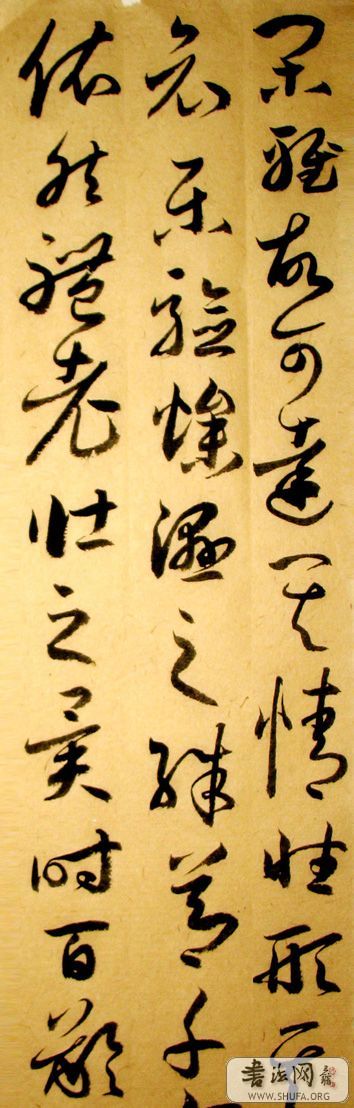 閑雅故可達其情性形其
哀樂驗燥濕之殊節千
依然體老壯之異時百齡
書法网
WWW.SHUFA.ORG